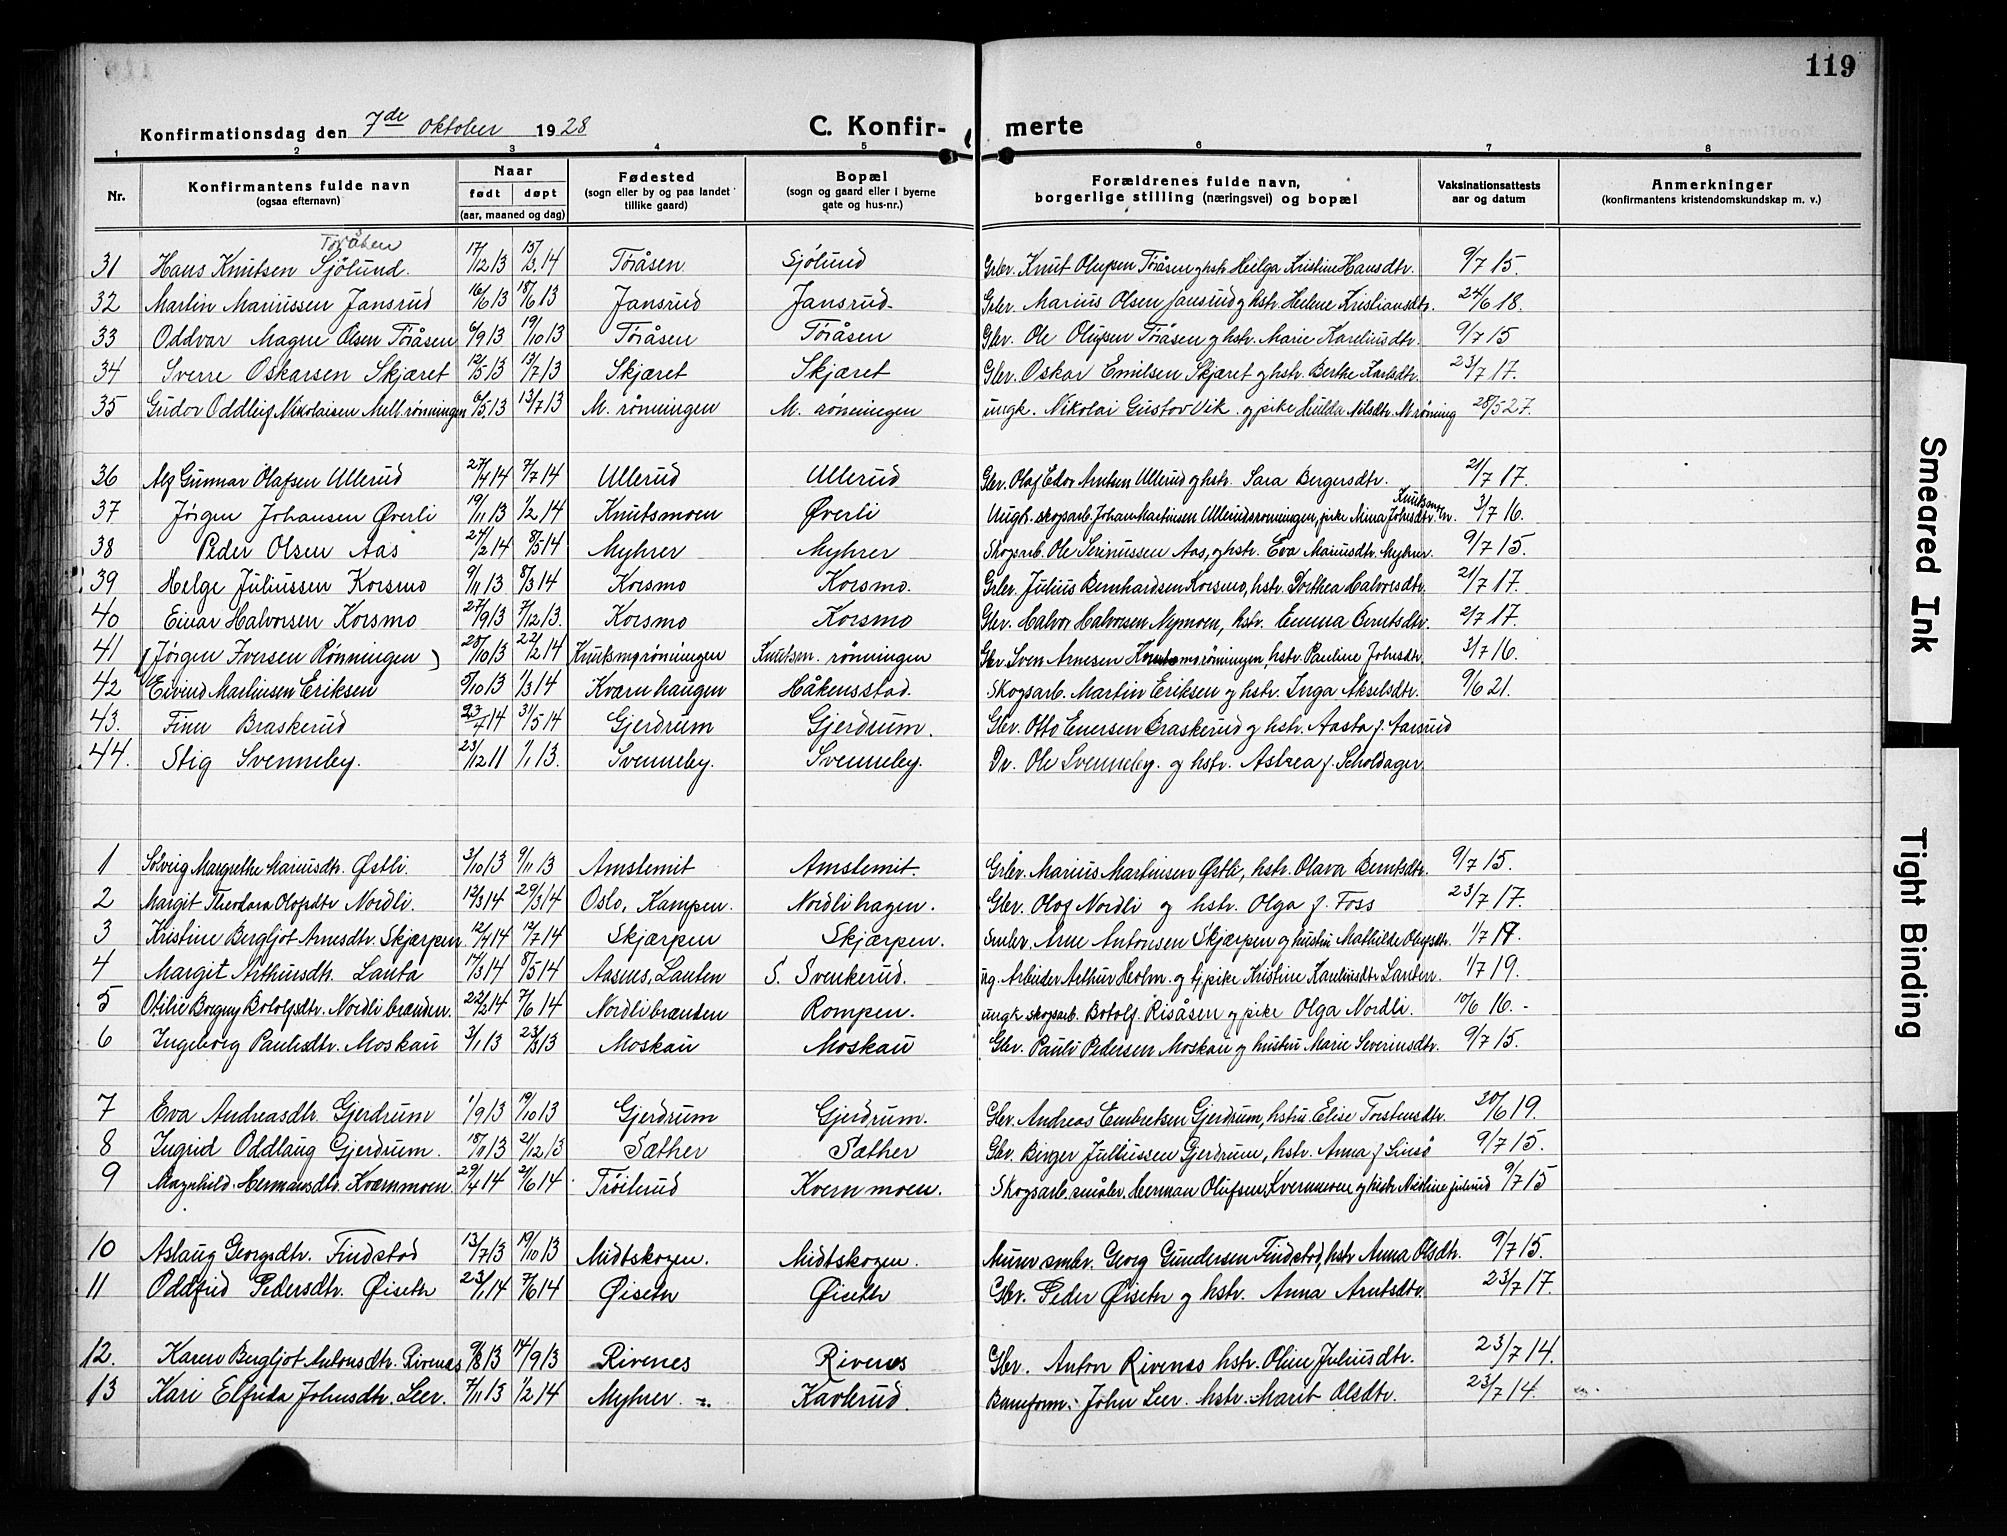 119
Konfirmationsdag den 7de oktober 1928 C. Konfir- merte
1 2 3 4 5 6 7 8
Nr. Konfirmantens fulde navn (ogsaa efternavn) Naar født døpt (aar, maaned og dag) Fødested (sogn eller by og paa landet tillike gaard) Bopæl (sogn og gaard eller i byerne gate og hus-nr.) Forældrenes fulde navn, borgerlige stilling (næringsvei) og bopæl Vaksinationsattests aar og datum Anmerkninger (konfirmantens kristendomskundskap m. v.)
Töråsen
31 Hans Knutsen Sjölund. 17/12 13 15/3 14 Töråsen Sjölund Gbr. Knut Olufsen Töråsen og hstr. Helga Kristine Hansdtr. 9/7 15.
32 Martin Mariussen Jansrud 16/6 13 Jansrud Jansrud Gbr. Marius Olsen Jansrud og hstr. Helene Kristiansdtr. 24/6 18.
33 Oddvar Magne Olsen Töråsen 6/9 13 19/10 13 Töråsen Töråsen Gbr. Ole Olufsen Töråsen og hstr. Marie Kareliusdtr. 9/7 15
34 Sverre Oskarsen Skjæret 12/5 13 13/7 13 Skjæret Skjæret Gbr. Oskar Emilsen Skjæret og hstr. Berthe Karlsdtr. 23/7 17.
35 Gudor Oddleif Nikolaisen Mell.rönningen 6/5 13 13/7 13 M. rönningen M. rönningen ungk. Nikolai Gustav Vik og pike Hulda Nilsdtr. M röning 28/5 27.
36 Alf Gunnar Olafsen Ullerud 27/4 14 7/7 14 Ullerud Ullerud Gbr. Olaf Edor Arntsen Ullerud og hstr. Sara Bergersdtr. 21/7 17.
37 Jörgen Johansen Øverli 19/11 13 1/2 14 Knutsmoen Øverli Ungk. skogsarb. Johan Martinsen Ullerudsrönningen, pike Mina Johsdtr. 3/7 16.
38 Peder Olsen Aas 24/2 14 8/5 14 Myhrer Myhrer Skogsarb. Ole Serinussen Aas, og hstr. Eva Mariusdtr. Myhrer. 9/7 15.
39 Helge Juliussen Korsmo 9/11 13 8/3 14 Korsmo Korsmo. Gbr. Julius Bernhardsen Korsmo, hstr. Dorthea Halvorsdtr. 21/7 17.
40 Einar Halvorsen Korsmo 27/9 13 7/12 13. Korsmo Korsmo Gbr. Halvor Halvorsen Nymoen, hstr. Emma Berntsdtr. 2/7 17.
41 (Jörgen Iversen Rönningen) 28/10 13 22/2 14 Knutsmorönningen Knutsm. rönningen Gbr Sven Arnesen Knutsmorönningen, hstr. Pauline Johsdtr. 3/7 16.
42 Eivind Martinsen Eriksen 5/10 13 1/3 14 Kværnhaugen Håkensstad. Skogsarb. Martin Eriksen og hstr. Inga Akselsdtr. 9/6 21.
43. Finn Braskerud 23/4 14 31/5 14 Gjerdrum Gjerdrum. Gbr. Otto Enersen Braskerud og hstr. Aasta f. Aarsrud
44. Stig Svenneby. 23/12 11 1/1 13. Svenneby. Svenneby. Dr. Ole Svenneby. og hstr. Astrea f. Scholdager.
1 Solveig Margrethe Mariusdtr. Østli. 3/10 13 9/11 13 Amslemit Amslemit. Gbr. Marius Martinsen Østli, hstr. Olava Berntsdtr. 9/7 15.
2 Margit Theodora Olofsdtr Nordli. 12/3 14 29/3 14 Oslo, Kampen. Nordlihagen. Gbr. Olof Nordli og hstr. Olga f. Foss 23/7 17.
3 Kristine Bergljot Arnesdtr. Skjærpen. 12/4 14 12/7 14 Skjærpen Skjærpen. Smbr. Arne Antonsen Skjærpen og hustru Mathilde Olufsdtr. 1/7 17.
4 Margit Arthursdtr. Lauta 14/3 14 8/5 14 Aasnes, Lauten S. Svenkerud. ug. Arbeider Arthur Holm. og tj.pike Kristine Karlusdtr Lauten. 1/7 19.
5 Otilie Borgny Botolfsdtr. Nordlibrænden. 22/2 14 7/6 14 Nordlibrænden Rompen. ungk skogsarb. Botolf Risåsen og pike Olga Nordli. 10/6 16.-
6 Ingeborg Paulisdtr. Moskau 3/1 13 23/3 13 Moskau Moskau Gbr. Pauli Pedersen Moskau og hustru Marie Severinsdtr. 9/7 15.
7 Eva Andreasdtr. Gjerdrum 1/9 13 19/10 13 Gjerdrum Gjerdrum. Gbr. Andreas Embretsen Gjerdrum, hstru Elise Torstensdtr. 30/6 19.
8 Ingrid Oddlaug Gjerdrum. 21/12 13 Sæther Sæther Gbr. Birger Juliussen Gjerdrum, hstr. Anna f. 9/7 15.
9 Magnhild Hermansdtr. Kværnmoen 29/4 14 21/6 14 Tröilerud Kvernmoen. Skogsarb. småbr. Herman Olufsen Kvernmoen og hstr 9/7 15
10 Aslaug Georgsdtr. Findstad 13/7 13 19/10 13 Midtskogen. Midtskogen. Murer smbr. Georg Gundersen Findstad, hstr. Anna Olsdtr. 9/7 15.
11 Oddfrid Pedersdtr. Øiseth 23/1 14 7/6 14 Øiseth Øiseth Gbr. Peder Øiseth og hstr. Anna Arntsdtr. 23/7 17.
12. Karen Bergljot Antonsdtr. Rivenes 9/8 13 14/9 13 Rivenes Rivenes Gbr. Anton Rivenes hstr. Oline Juliusdtr. 23/7 14.
13 Kari Elfrida Johnsdtr. Leer. 7/11 13 1/2 14 Myhrer Kavlerud. Baneform. John Leer. hstr. Marit Olsdtr. 23/7 14.
Smeared Ink
Tight Binding